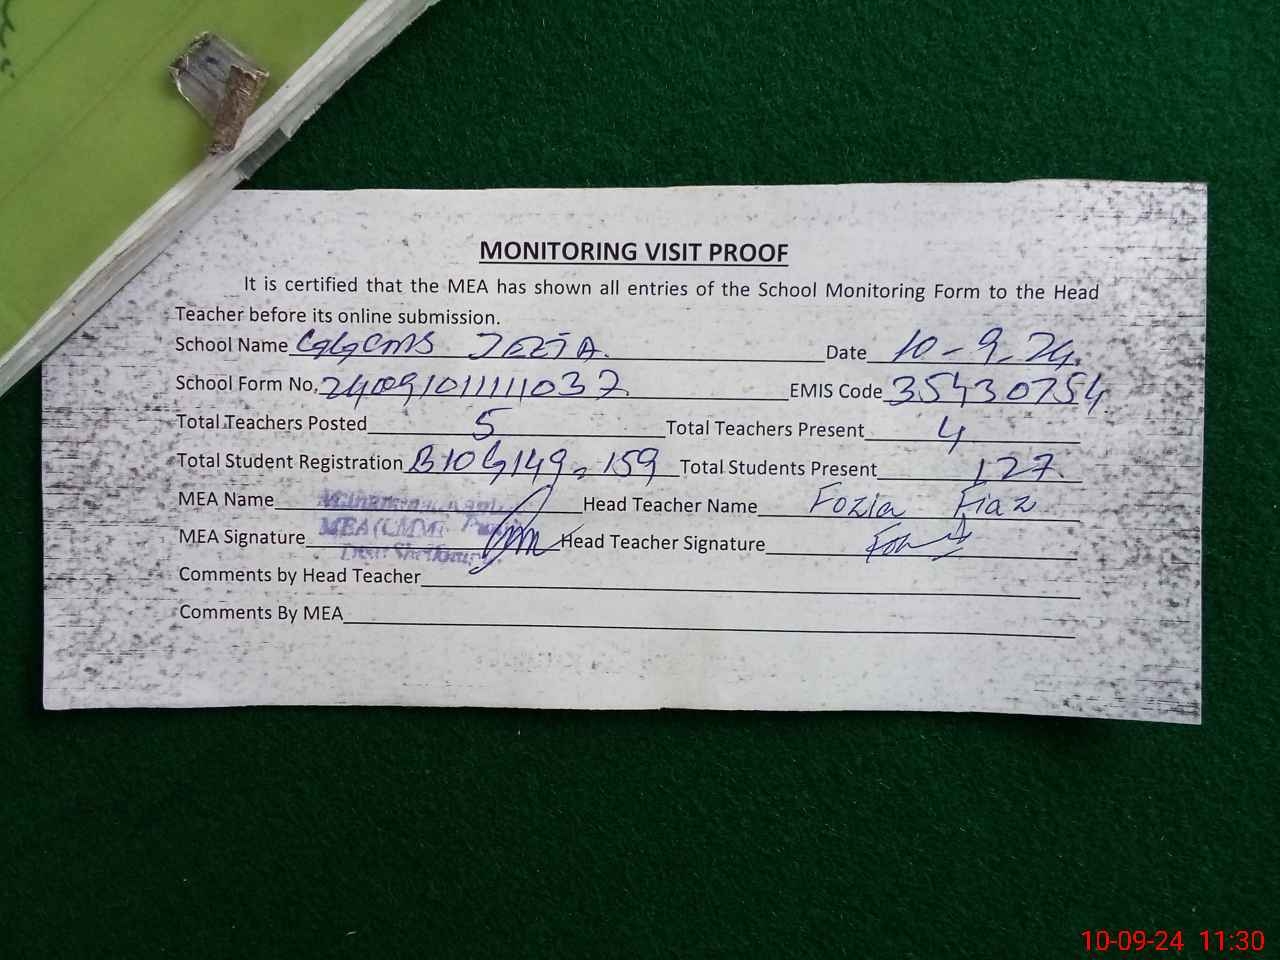 MONITORING VISIT PROOF
It is certified that the MEA has shown all entries of the School Monitoring Form to the Head
Teacher before its online submission.
School Name GGCMS JEEJA. Date 10-9-24.
School Form No. 24091011111037 EMIS Code 35430754
Total Teachers Posted 5 Total Teachers Present 4
Total Student Registration B10G149=159 Total Students Present 127.
MEA Name Head Teacher Name Fozia Fiaz
MEA Signature MEA Head Teacher Signature
Comments by Head Teacher
Comments By MEA
10-09-24 11:30